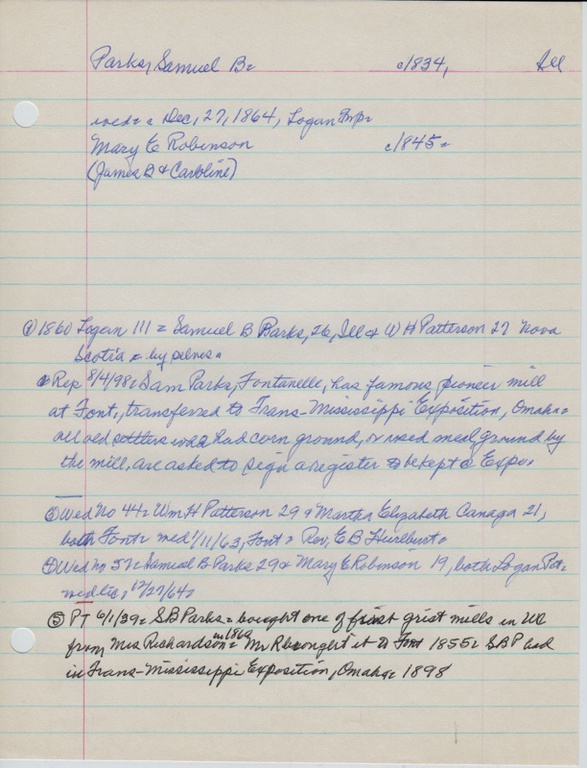 Parks, Samuel B= c/1834, Ill
wed= Dec, 27, 1864, Logan Twp=
Mary E Robinson c/1845=
(James D & Caroline)
① 1860 Logan 111 = Samuel B Parks, 26, Ill & W H Patterson 27 Nova
Scotia = by selves=
② Rep 8/4/98= Sam Parks, Fontanelle, has famous pioneer mill
at Font, transferred to Trans-Mississippi Exposition, Omaha=
all old settlers who had corn ground, or used meal ground by
the mill, are asked to sign a register to be kept @ Expo=
③ Wed No 44= Wm H Patterson 29 & Martha Elizabeth Canaga 21,
both Font= wed 1/11/63, Font= Rev, E B Hurlbut=
④ Wed No 57= Samuel B Parks 29 & Mary E Robinson 19, both Logan Pct=
12/27/64=
⑤ PT 6/1/39= S B Parks= bought one of first grist mills in
from Mrs Richardson in 1860= Mr R brought it to Font 1855= S B P had
in Trans-Mississippi Exposition, Omaha= 1898